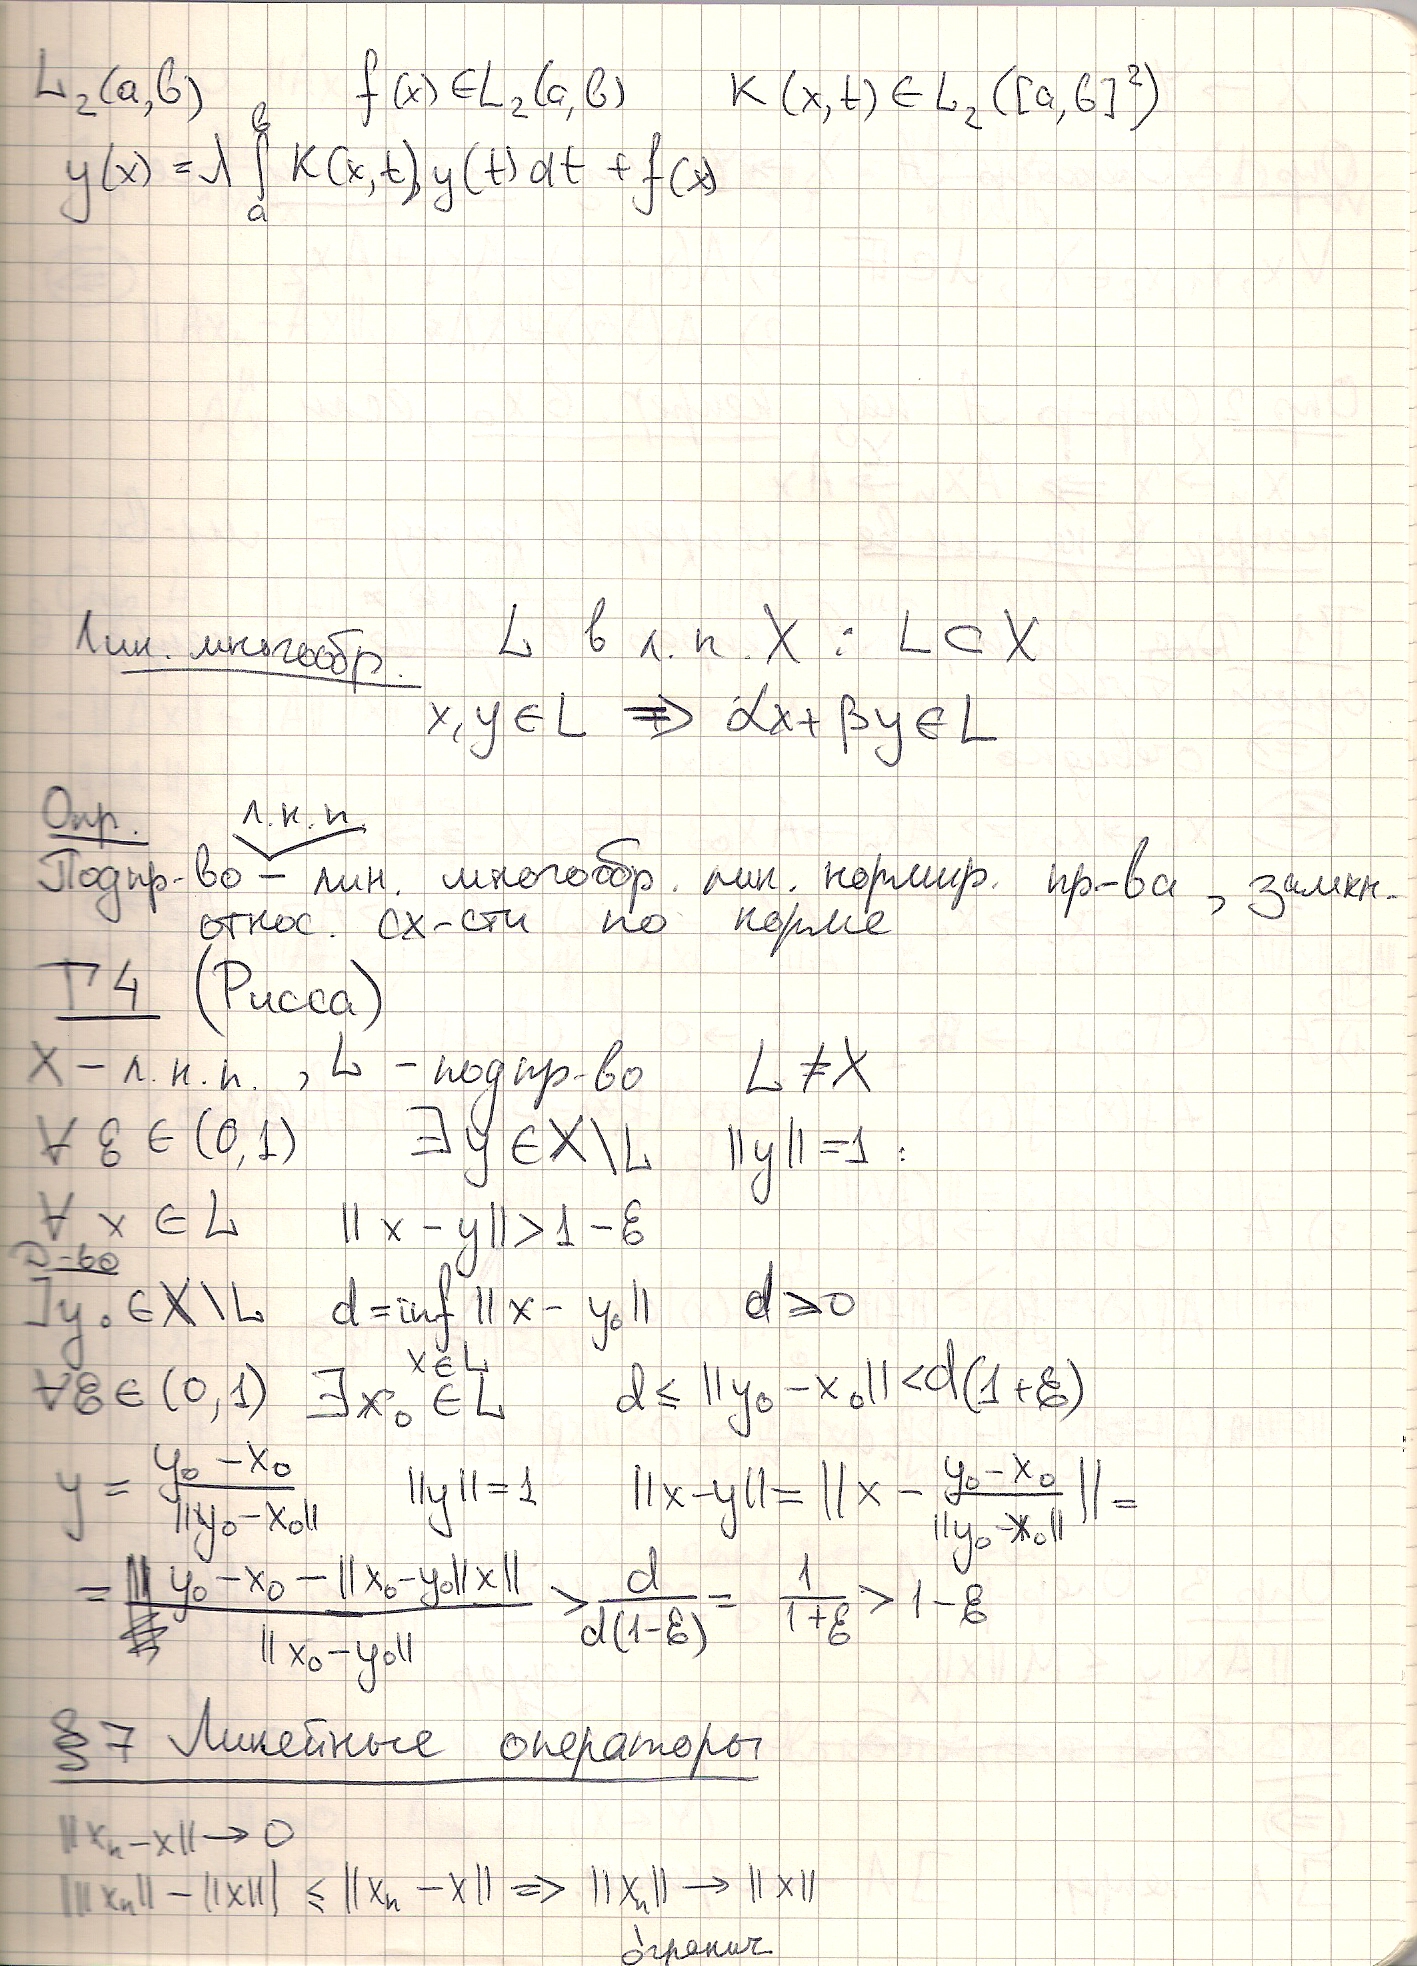 L₂(a,b) f(x)∈L₂(a,b) K(x,t)∈L₂([a,b]²)
y(x) = λ ∫ₐᵇ K(x,t) y(t) dt + f(x)
Лин. многообр. L в л.п. X : L⊂X
x,y∈L ⇒ αx+βy∈L
Опр. л.н.п.
Подпр-во – лин. многообр. лин. нормир. пр-ва, замкн.
относ. сх-сти по норме
Т4 (Рисса)
X – л.н.п., L – подпр-во L≠X
∀ ε ∈ (0,1) ∃ y ∈ X\L ||y||=1 :
∀ x ∈ L ||x – y|| > 1 – ε
Д-во
∃y₀ ∈ X\L d = inf ||x – y₀|| d ≥ 0
x∈L
∀ε ∈ (0,1) ∃x₀ ∈ L d ≤ ||y₀ – x₀|| < d(1+ε)
y = (y₀ – x₀)/||y₀ – x₀|| ||y||=1 ||x–y|| = ||x – (y₀ – x₀)/||y₀ – x₀|| || =
= ||y₀ – x₀ – ||x₀–y₀||x||/||x₀ – y₀|| > d/d(1–ε) = 1/(1+ε) > 1 – ε
§7 Линейные операторы
||xₙ – x|| → 0
| ||xₙ|| – ||x|| | ≤ ||xₙ – x|| ⇒ ||xₙ|| → ||x||
огранич.